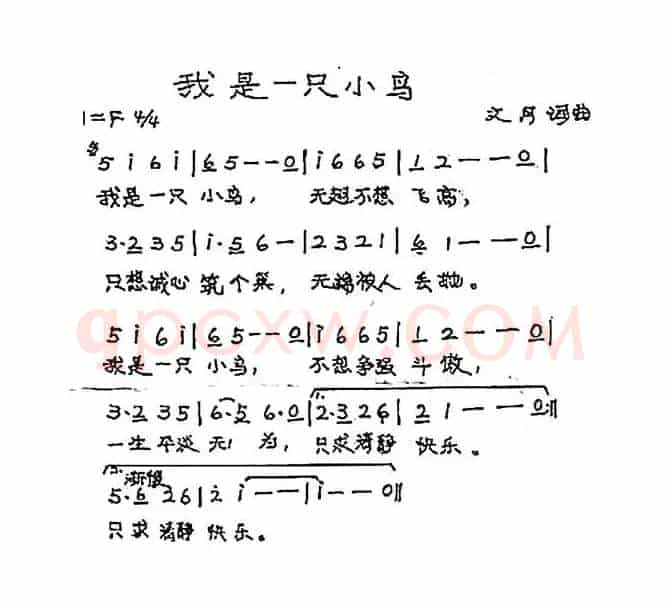 我是一只小鸟
1=F 4/4
文月词曲
5 i 6 i | 6 5 - - 0 | i 6 6 5 | 1 2 - - 0 |
我是一只 小鸟， 无 不想 飞高，
3·2 3 5 | i·5 6 - | 2 3 2 1 | 6 1 - - 0 |
只想诚心 筑个巢， 无 被人 丢抛。
5 i 6 i | 6 5 - - 0 | i 6 6 5 | 1 2 - - 0 |
我是一只 小鸟， 不想争强 斗傲，
3·2 3 5 | 6·5 6·0 | 2·3 2 6 | 2 1 - - 0 :||
一生平淡 无 为， 只求清静 快乐。
渐慢
5·6 2 6 | 2 i - - | i - - 0 ||
只求清静 快乐。
qpcxw.COM